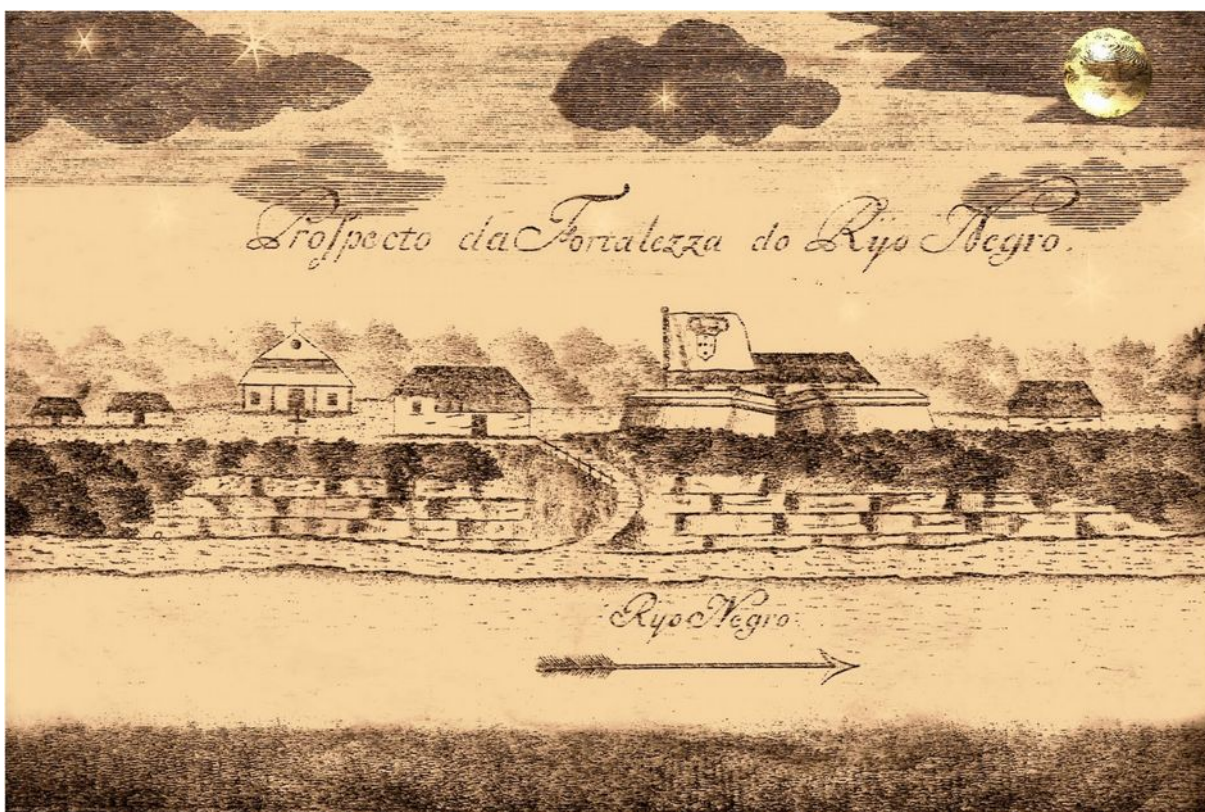 Proſpecto da Fortalezza do Ryo Negro.
Ryo Negro